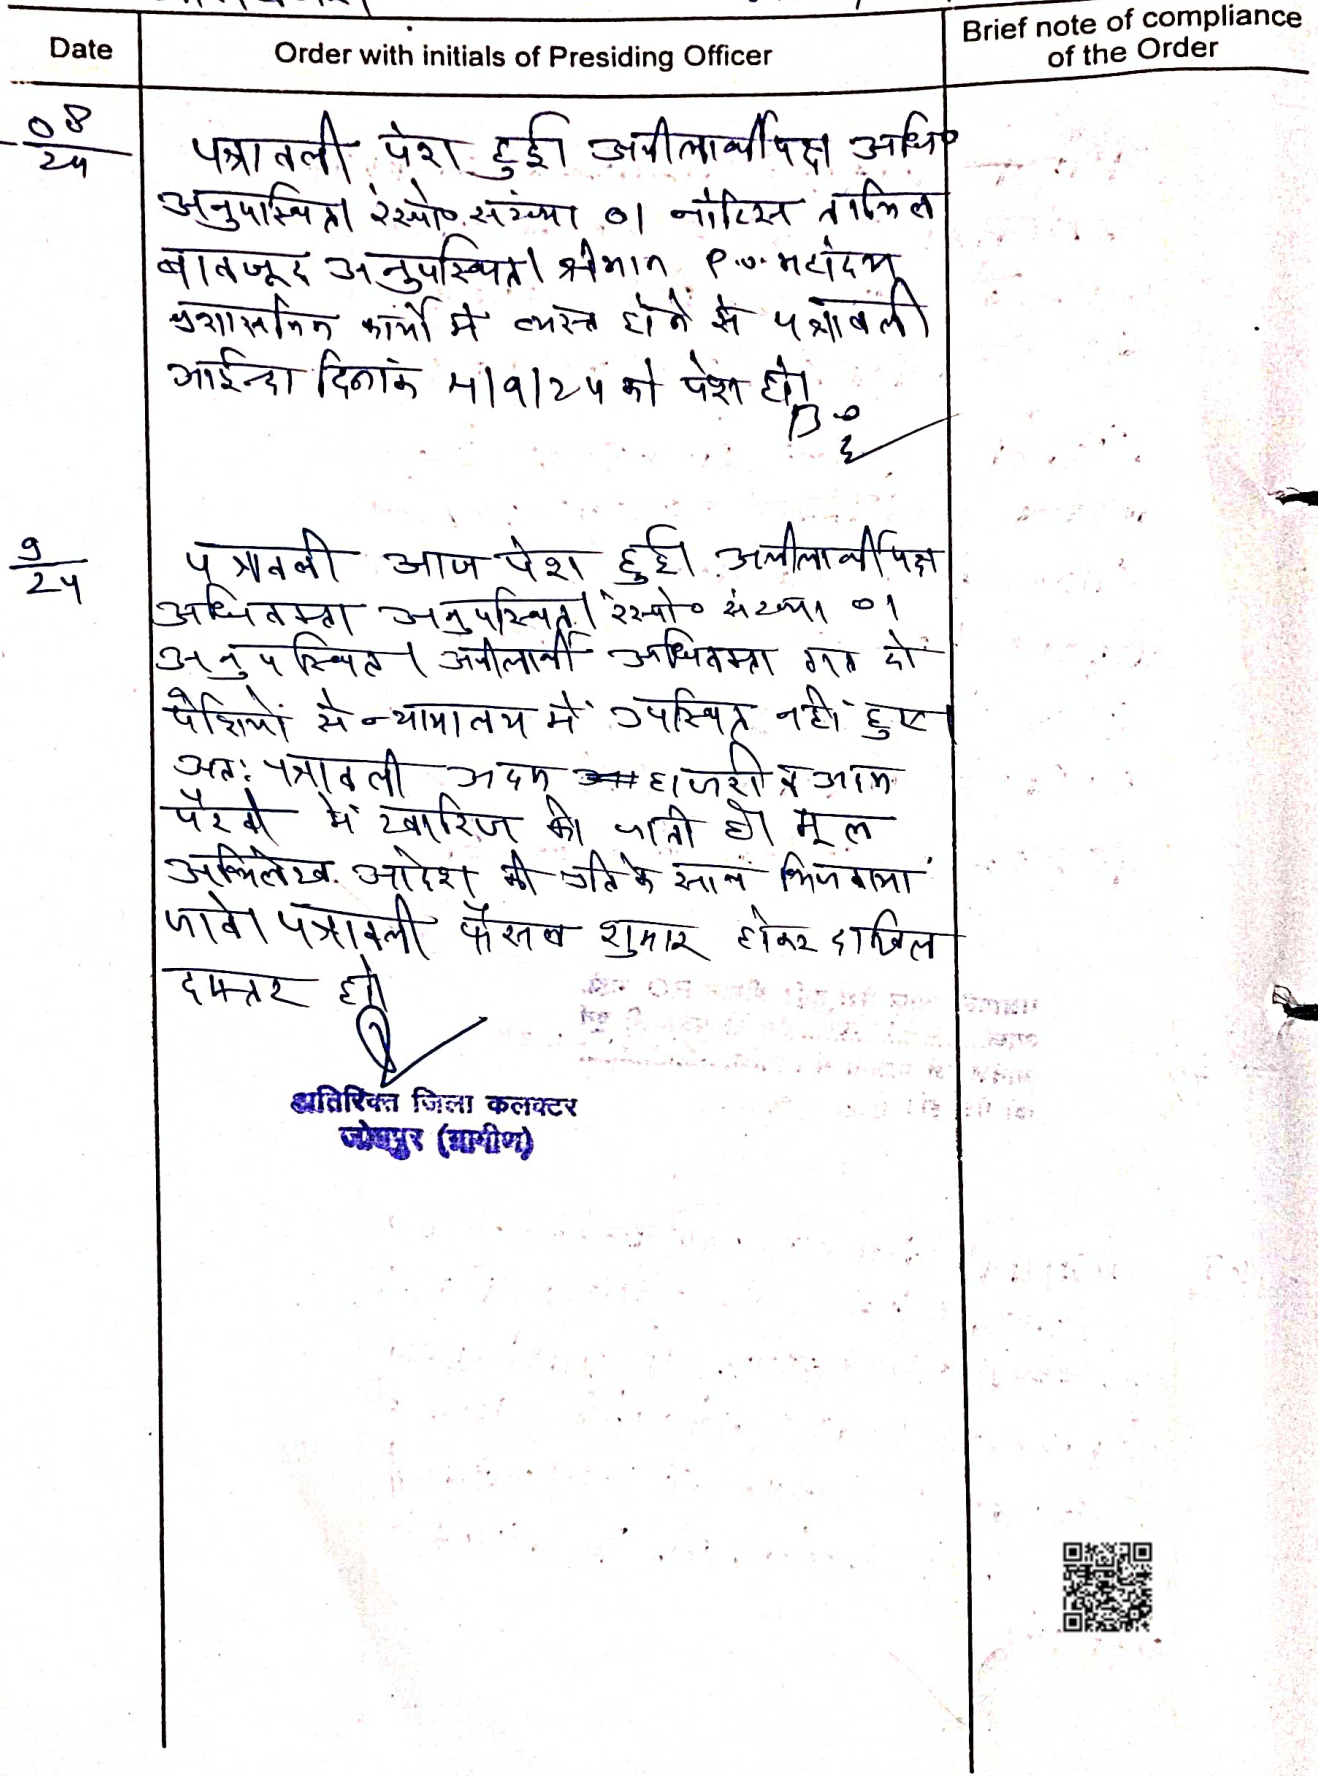 Date
Order with initials of Presiding Officer
Brief note of compliance
of the Order
08
24
पत्रावली पेश हुई। अपीलार्थीपक्ष अधि०
अनुपस्थित। रेस्पो० संख्या 01 नोटिस तामिल
बावजूद अनुपस्थित। श्रीमान P.O. महोदय
प्रशासनिक कार्यो में व्यस्त होने से पत्रावली
आईन्दा दिनांक 4/9/24 को पेश हो।
9
24
पत्रावली आज पेश हुई। अपीलार्थीपक्ष
अधिवक्ता अनुपस्थित। रेस्पो० संख्या 01
अनुपस्थित। अपीलार्थी अधिवक्ता गत दो
पेशियों से न्यायालय में उपस्थित नहीं हुए।
अतः पत्रावली अदम हाजरी व अदम
पैरवी में खारिज की जाती है। मूल
अभिलेख आदेश की प्रति के साथ भिजवाया
जावे। पत्रावली फैसल शुमार होकर दाखिल
दफ्तर हो।
अतिरिक्त जिला कलक्टर
जोधपुर (ग्रामीण)